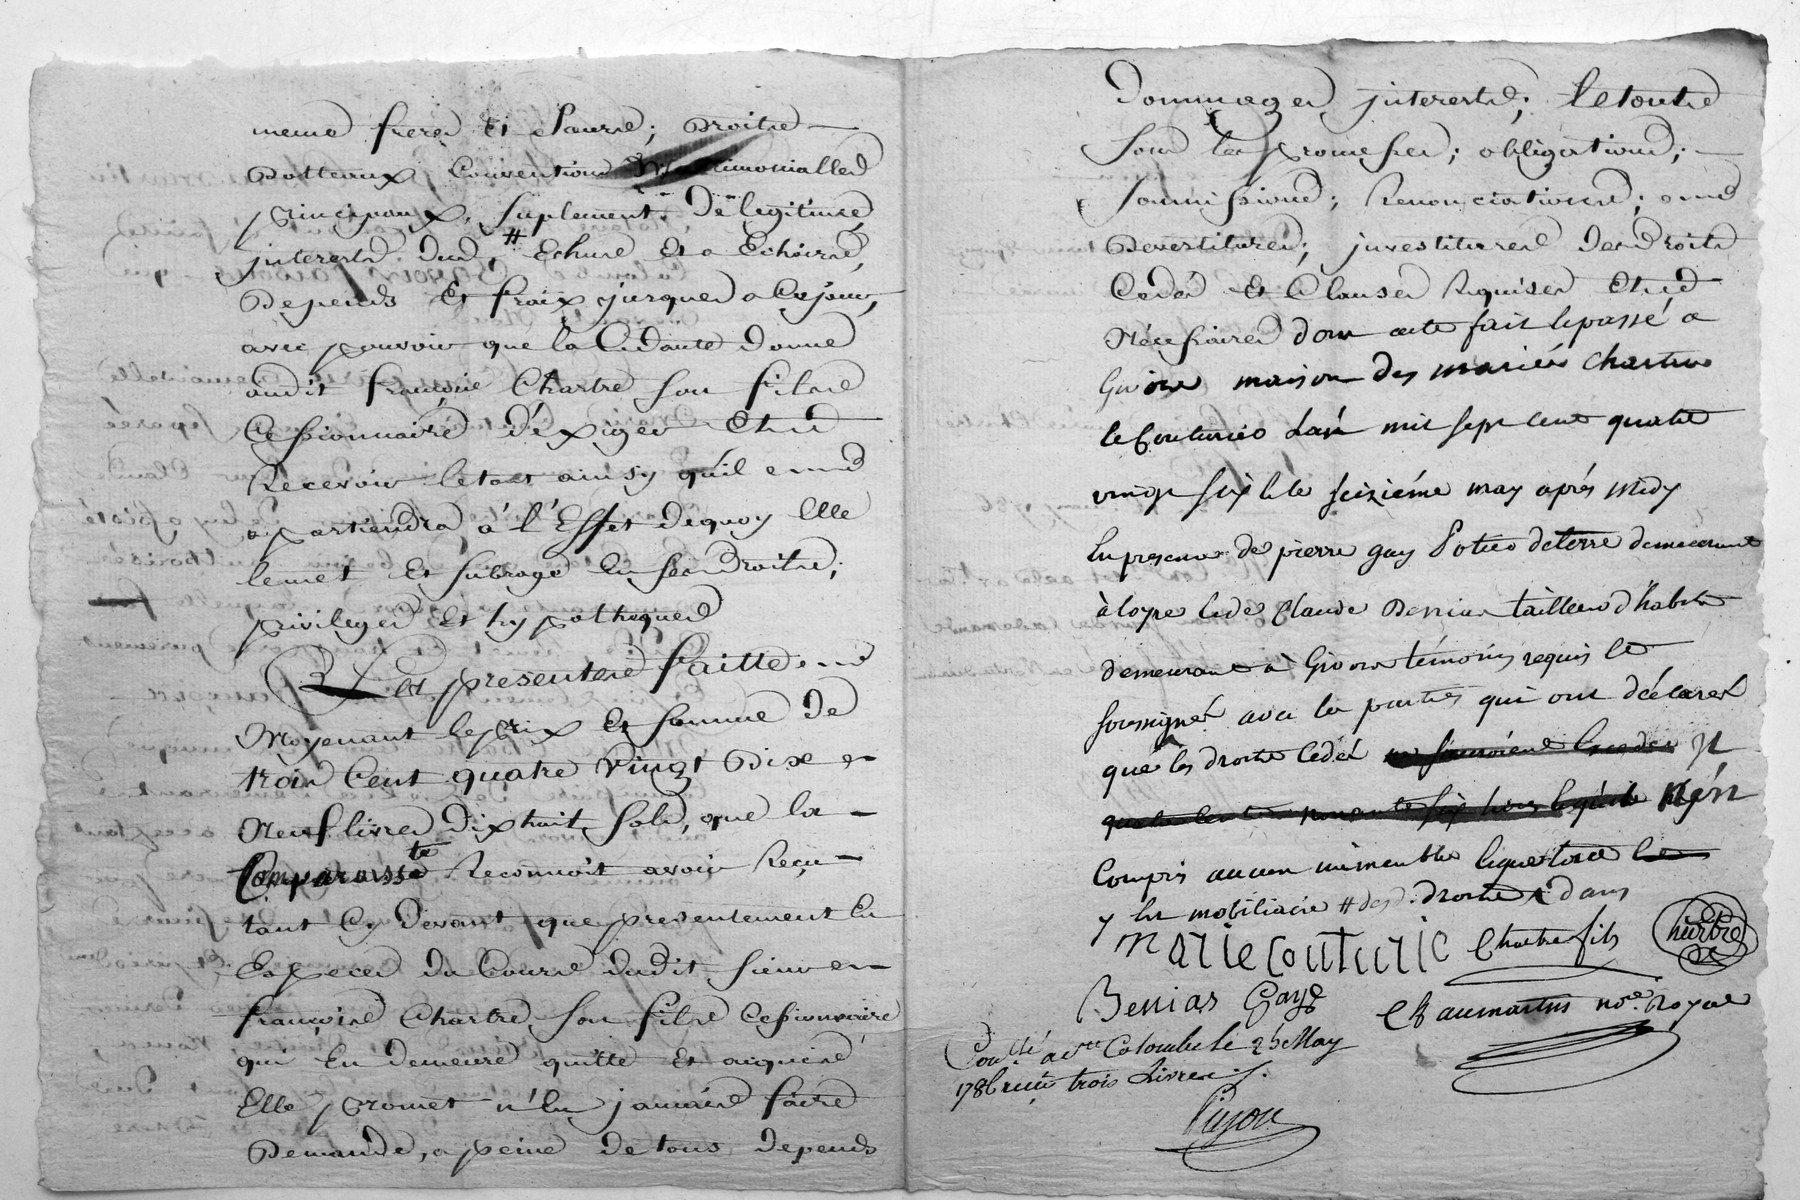 meme freres Et Sœurs; Droits
Dotteaux Conventions Matrimonialles
principaux, suplement De legitime
interests Dud. # Echus Et a Echoirs,
Depends Et fraix jusques a Cejour,
avec pouvoir que la Cedante donne
audit françois Chartre son fils
Cessionnaire D'éxiger Et
Recevoir letout ainsy qu'il
apartiendra à l'Effet dequoy Elle
lemet Et subroge En ses Droits;
privileges Et hypotheques
Les presentes faitte
Moyenant leprix Et somme De
trois Cent quatre Vingt Dixe
Neuf livres Dixhuit sols, que la
Comparoisste Reconnoit avoir Reçu
tant Cy Devant que presentement En
Especes du Cours dudit sieur
françois Chartre, son fils Cessionnaire
qui En demeure quitte Et
Elle promet n'En jamais faire
Demande, a peine De tous Depends
Dommages interests; letout
sous les promesses; obligations;
soumissions; Renonciations;
Devestitures; investitures Des Droits
Cedés Et Clauses Requises Et
Nécessaires dont acte fait Et passé a
Givors maison des mariés Chartre
et Couturier L'an mil sept cent quatre
vingt six Et le seizième may après midy
En presence de pierre gay Potier deterre demeurant
à loyre Et de Claude Benias tailleur d'habits
demeurant à Givors témoins requis Et
soussignés avec les parties qui ont déclarés
que les droits Cedés
quatre cent Nén
Compris aucun immeuble
y les mobiliaire # des droits dans
Marie couturie Chartre fils Chartre
Benias Gay Chaumartin nore. Royal
Coullé a Ste Colombe le 25 May
1786 reçu trois Livres
Pujon